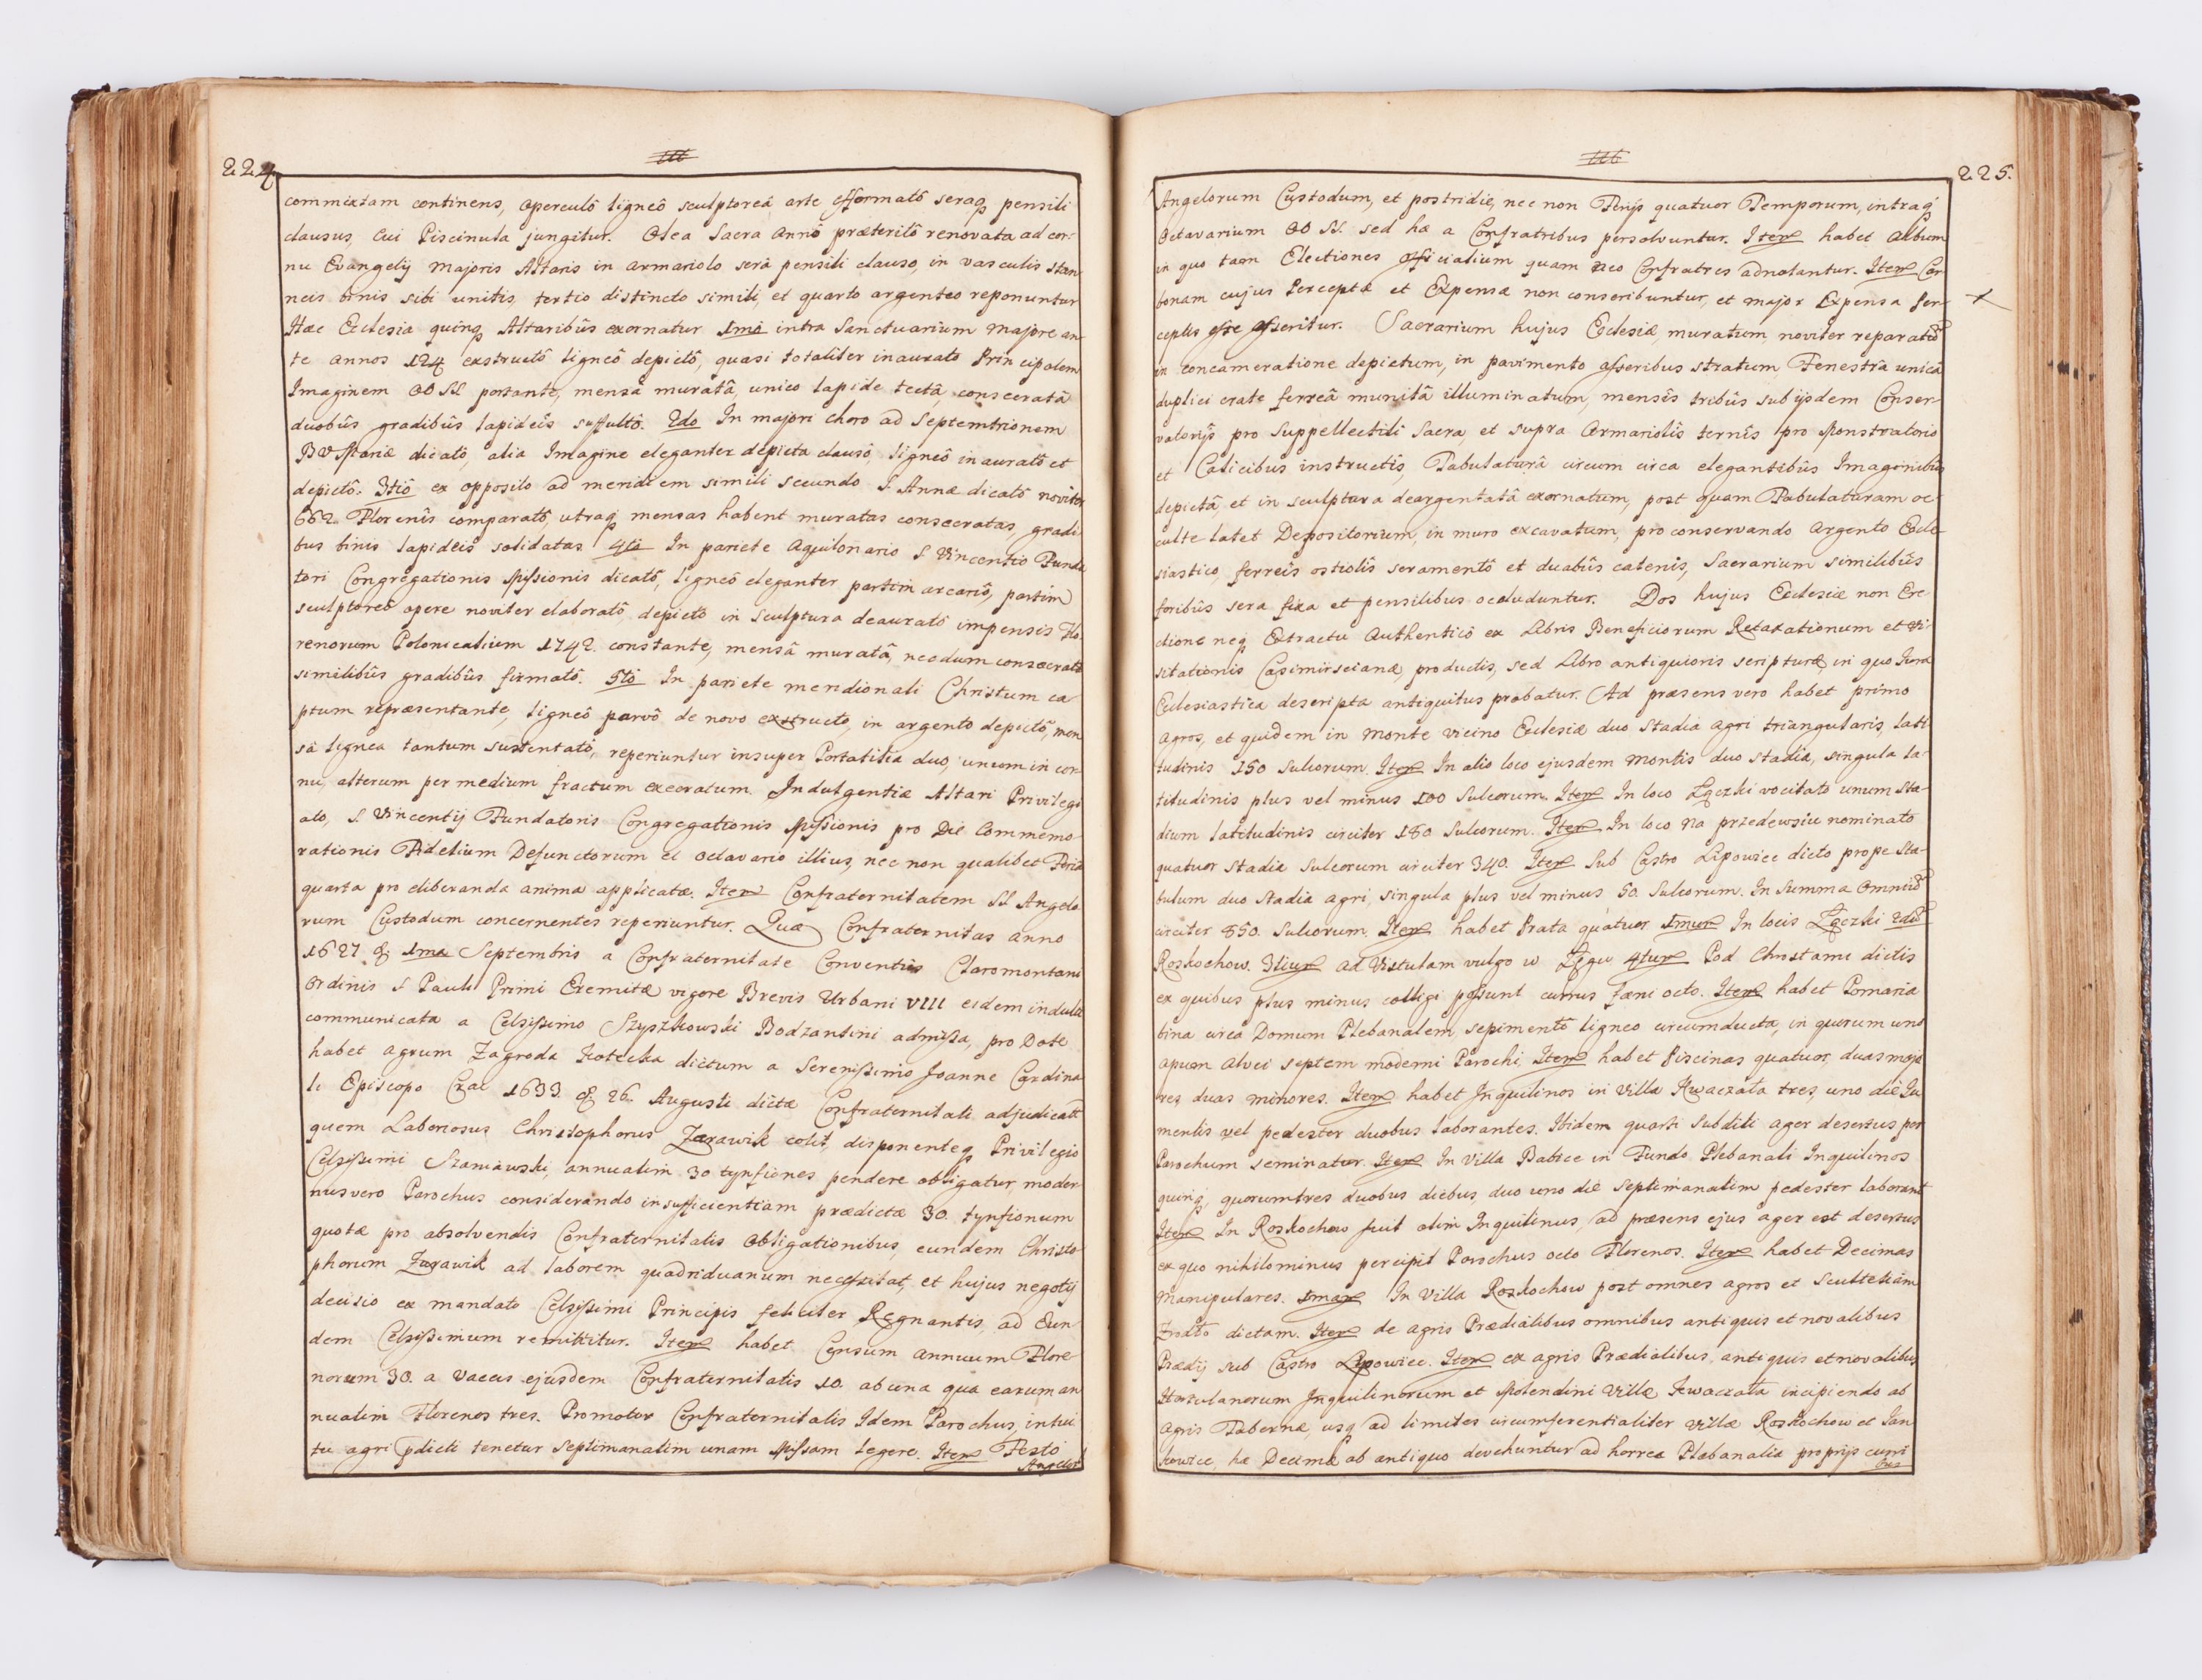 224
commixtam continens, operculô ligneô sculptoreâ arte efformatô seraq pensili
clausus, cui Piscinula jungitur. Olea Sacra Annô præteritô renovata ad cor-
nu Evangelij Majoris Altaris in armariolo serâ pensili clauso, in vasculis stan
neis binis sibi unitis, tertio distincto simili, et quarto argenteo reponuntur
Hæc Ecclesia quinq Altaribûs exornatur 1mô intra Sanctuarium majore an-
te annos 124 exstructô ligneô depictô, quasi totaliter inaurato Principalem
Imaginem OO SS. portante, mensâ muratâ, unico lapide tectâ, consecratâ
duobûs gradibûs lapideîs suffultô. 2do In majori Choro ad Septemtrionem
BV Mariæ dicatô, alia Imagine eleganter depicta clausô, ligneô inauratô et
depictô. 3tiô ex opposito ad meridiem simili secundo S. Annæ dicatô noviter
662 Florenîs comparatô, utraq mensas habent muratas consecratas, gradi
bus binis lapideîs solidatas 4tô In pariete Aquilonario S. Vincentio Funda
tori Congregationis Missionis dicatô, ligneô eleganter partim arcariô, partim
sculptoreô opere noviter elaboratô depictô in sculptura deauratô impensis Flo
renorum Polonicalium 1742. constante, mensâ muratâ, necdum consecratâ
similibûs gradibûs firmatô. 5tô In pariete meridionali Christum ca
ptum repræsentante, ligneô parvô de novo exstructo, in argento depictô, men
sâ lignea tantum sustentatô, reperiuntur insuper Portatilia duo, unum in cor
nu, alterum per medium fractum execratum. Indulgentiæ Altari Privilegi
ato, S. Vincentij Fundatoris Congregationis Missionis pro Die Commemo-
rationis Fidelium Defunctorum et octavario illius, nec non qualibet Feria
quarta pro eliberanda anima applicatæ. Item Confraternitatem SS. Angelo
rum Custodum concernentes reperiuntur. Quæ Confraternitas anno
1627 & 1ma Septembris a Confraternitate Conventûs Claromontani
Ordinis S Pauli Primi Eremitæ vigore Brevis Urbani VIII eidem indulti
communicata a Celsissimo Szyszkowski Bodzantini admissa, pro Dote
habet agrum Zagroda Kotecka dictum a Serenissimo Joanne Cardina
li Episcopo Crac 1633. & 26. Augusti dictæ Confraternitati adjudicatû
quem Laboriosus Christophorus Zarawik colit, disponenteq Privilegio
Celsissimi Szaniawski, annuatim 30 tynfiones pendere obligatur, moder
nus vero Parochus considerando insufficientiam prædictæ 30. tynfionum
quotæ pro absolvendis Confraternitatis Obligationibus, eundem Christo-
phorum Zurawik ad laborem quadriduanum necessitat, et hujus negotij
decisio ex mandato Celsissimi Principis feliciter Regnantis, ad Eun
dem Celsissimum remittitur. Item habet Censum annuum Flore-
norum 30. a Vaccis ejusdem Confraternitatis 10. ab una qua earum an
nuatim Florenos tres. Promotor Confraternitatis Idem Parochus, intui
tu agri pdicti tenetur septimanatim unam Missam legere. Item Festo
Angelor
225.
Angelorum Custodum, et postridie, nec non Ferijs quatuor Temporum, intraq
Octavarium OO SS. sed hæ a Confratribus persolvuntur. Item habet Album
in quo tam Electiones officialium quam neo Confratres adnotantur. Item Car
bonam cujus Percepta et Expensæ non conscribuntur, et major Expensa per-
ceptis esse asseritur. Sacrarium hujus Ecclesiæ, muratum, noviter reparatû
in concameratione depictum, in pavimento asseribus stratum, Fenestrâ unicâ
duplici crate ferreâ munitâ illuminatum, mensîs tribûs sub ijsdem Conser-
vatorijs pro Suppellectili Sacra, et supra Armariolîs ternîs pro Monstratorio
et Calicibus instructîs, Tabulaturâ circum circa elegantibûs Imaginibûs
depictâ, et in sculptura deargentatâ exornatum, post quam Tabulaturam oc-
culte latet Depositorium, in muro excavatum, pro conservando argento Eccle
siastico, ferreîs ostiolîs seramentô et duabûs catenîs, Sacrarium similibûs
foribûs sera fixa et pensilibus occluduntur. Dos hujus Ecclesiæ non Ere-
ctione neq Extractu Authenticô ex Libris Beneficiorum Retaxationum et Vi-
sitationis Casimirscianæ, productis, sed Libro antiquioris scripturæ, in quo Jura
Ecclesiastica descripta antiquitus probatur. Ad præsens vero habet primo
agros, et quidem in monte vicino Ecclesiæ duo Stadia agri triangularis, lati
tudinis 150 sulcorum. Item In alio loco ejusdem Montis duo stadia, singula la-
titudinis plus vel minus 100 Sulcorum. Item In loco Łączki vocitato unum Sta-
dium latitudinis circiter 180 Sulcorum. Item In loco Na przedewsiu nominato
quatuor Stadia Sulcorum circiter 340. Item Sub Castro Lipowiec dicto prope Sta-
bulum duo Stadia agri, singula plus vel minus 50. Sulcorum. In Summa Omniû
circiter 850. Sulcorum. Item habet Prata quatuor 1mum In locis Łączki 2dû
Roskochow. 3tium ad Vistulam vulgo w Łęgu 4tum Pod Chrostami dictis
ex quibus plus minus colligi possunt currus fæni octo. Item habet Pomaria
bina circa Domum Plebanalem, sepimentô ligneo circumducta, in quorum uno
apum alvei septem moderni Parochi, Item habet Piscinas quatuor, duas majo
res, duas minores. Item habet Inquilinos in Villa Kwaczała tres, uno die Ju
mentis vel pedester duobus laborantes. Ibidem quarti Subditi ager desertus per
Parochum seminatur. Item In Villa Babice in Fundo Plebanali Inquilinos
quinq, quorum tres duobus diebus, duo uno die septimanatim pedester laborant
Item In Roskochow fuit olim Inquilinus, ad præsens ejus ager est desertus
ex quo nihilominus percipit Parochus octo Florenos. Item habet Decimas
Manipulares. 1mam In Villa Roskochow post omnes agros et Scultetiam
dictam. Item de agris Prædialibus omnibus antiquis et novalibus
Prædij sub Castro Lipowiec. Item ex agris Prædialibus, antiquis et novalibus
Hortulanorum Inquilinorum et Molendini Villæ Kwaczała incipiendo ab
Agris Tabernæ, usq ad limites circumferentialiter Villæ Roskochow et Jan
kowice, hæ Decimæ ab antiquo devehuntur ad horrea Plebanalia proprijs curri
bus